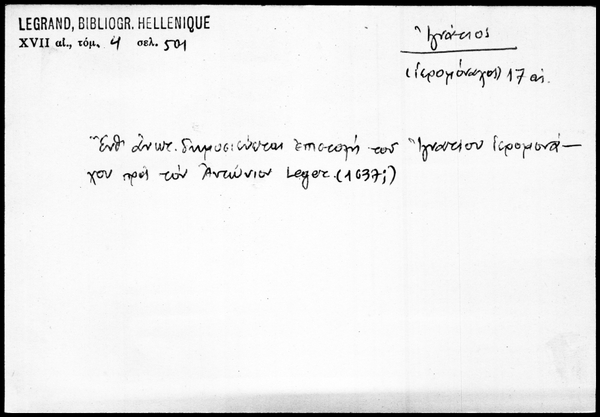 LEGRAND, BIBLIOGR. HELLENIQUE
XVII αἰ., τόμ. 4 σελ. 501
Ἰγνάτιος
(ἱερομόναχος) 17 αἰ.
Ἔνθ' ἀνωτ. δημοσιεύεται ἐπιστολή του Ἰγνατίου ἱερομονά-
χου πρὸς τὸν Ἀντώνιον Leger. (1637;)